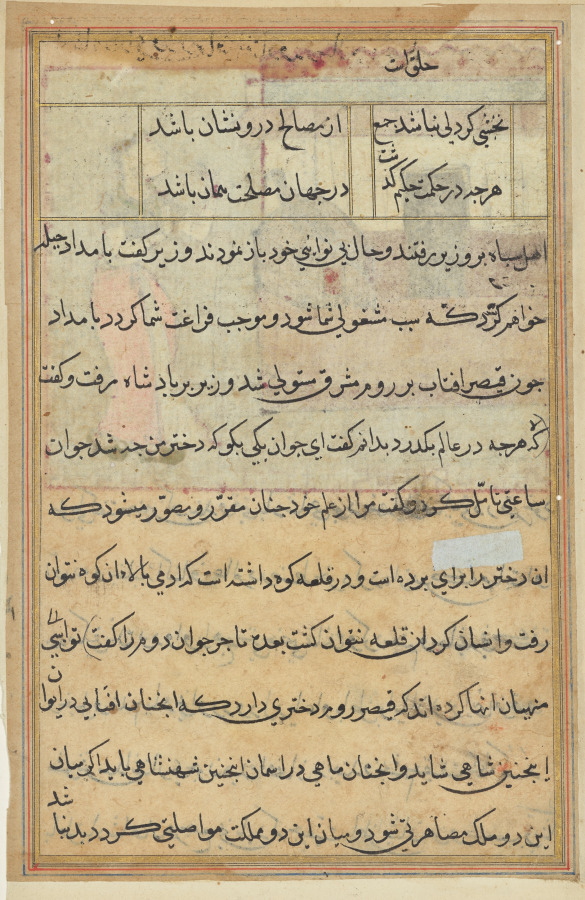 حلوات
نخشبی کر دلی نباشد جمع
از مصالح درو نشان باشد
هرچه در حکمت حکیم کند
در جهان مصلحت همان باشد
اهل سپاه بر وزیر رفتند و حال بی نوایی خود باز نمودند وزیر گفت بامداد حیله
خواهم کرد که سبب مشغولی شما شود و موجب فراغت شما کردد بامداد
جون قیصر افتاب بر روم مشرق مستولی شد وزیر بر بادشاه رفت و گفت
که هرجه در عالم بکذرد بدانم کفت ای جوان نیکی بکو که دختر من جه شد جوان
ساعتی تامّل کرد و کفت مرا از علم خود جنان مقرّر و مصوّر میشود که
ان دختر را برای برده است و در قلعه کوه داشته است که ادمی بالاء ان کوه نتوان
رفت واسان کرد ان قلعه نتوان کشت بعده تاجر جوان دوم را کفت تو
منهیان انها کرده اند که قیصر روم دختری دارد که انجنان افتابی در ایوان
اینجنین شاهی شاید و انجنان ماهی در اسمان اینجنین شهنشاهی باید اکر میان
این دو ملک مصاهرتی شود و میان این دو مملکت مواصلتی کردد بد نباشد